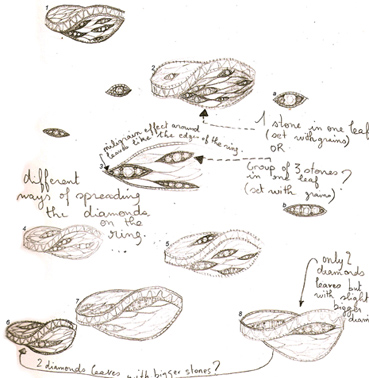 1
2
1 stone in one leaf
(set with grains)
OR
milligrain effect around
leaves like the edge of the ring.
3
Group of 3 stones ?
in one leaf
(set with grains)
different
ways of spreading
the diamonds
on the
ring...
4
5
only 2
diamonds
leaves but
with slight
bigger
diam
6
7
8
2 diamonds leaves with bigger stones?